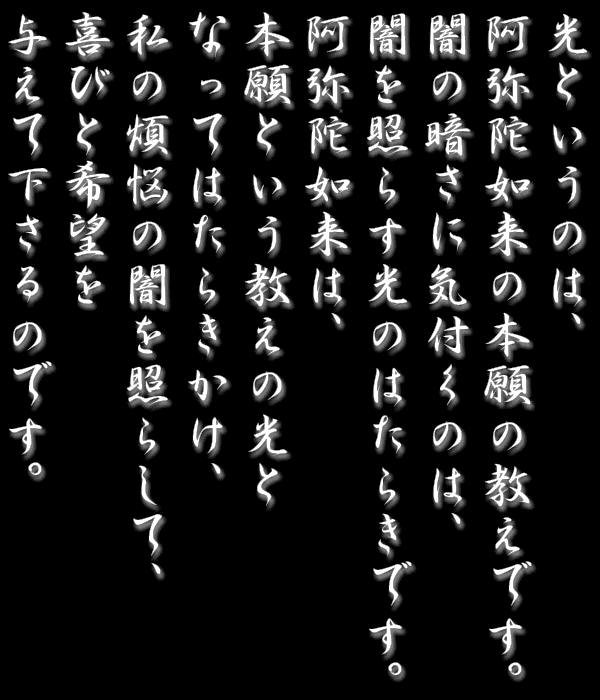 光というのは、
阿弥陀如来の本願の教えです。
闇の暗さに気付くのは、
闇を照らす光のはたらきです。
阿弥陀如来は、
本願という教えの光と
なってはたらきかけ、
私の煩悩の闇を照らして、
喜びと希望を
与えて下さるのです。